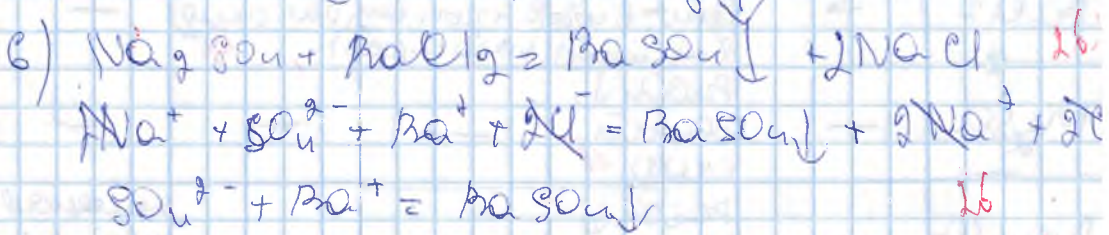 б) Na₂SO₄ + BaCl₂ = BaSO₄↓ + 2NaCl 2б.
2Na⁺ + SO₄²⁻ + Ba⁺ + 2Cl⁻ = BaSO₄↓ + 2Na⁺ + 2C
SO₄²⁻ + Ba⁺ = BaSO₄↓ 2б